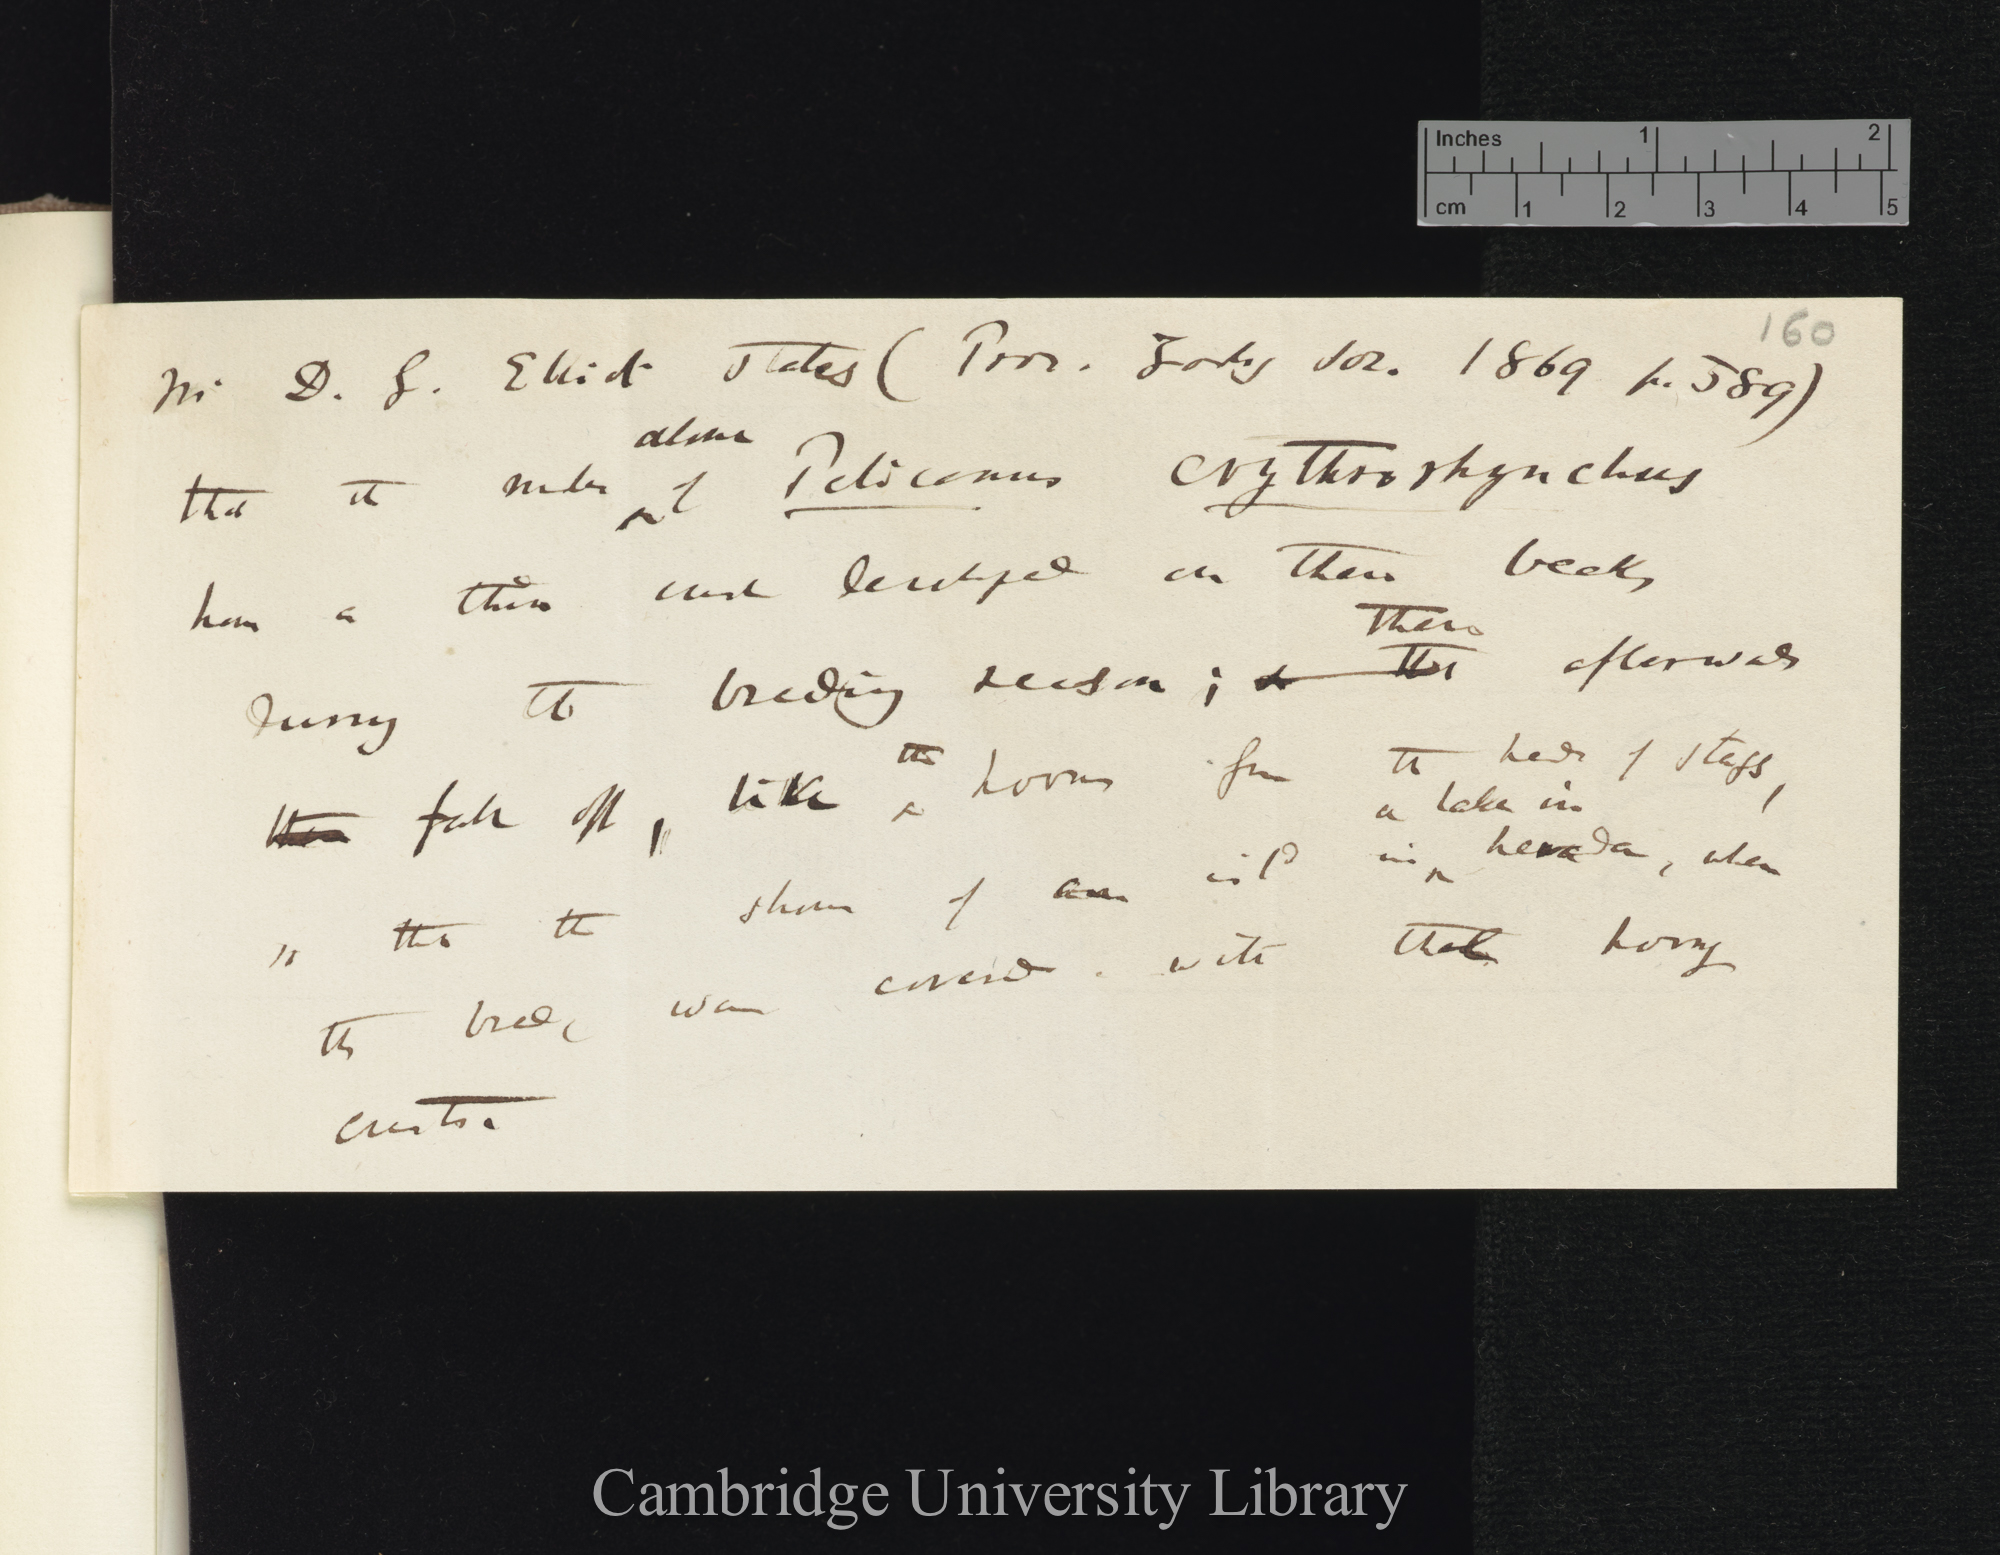 160
Mr D. G. Elliot states (Proc. Zoolog Soc. 1869 p. 589)
alone
that the males of Pelicanus erythrorhynchus
have a thin crest developed on their beaks
these
during the breeding season; afterwards
fall off, like the horns from the heads of stags,
a lake in
that the shores of an isl^d in Nevada, when
the breed, were covered with these horny
crests.
Inches 1 2
cm 1 2 3 4 5
Cambridge University Library